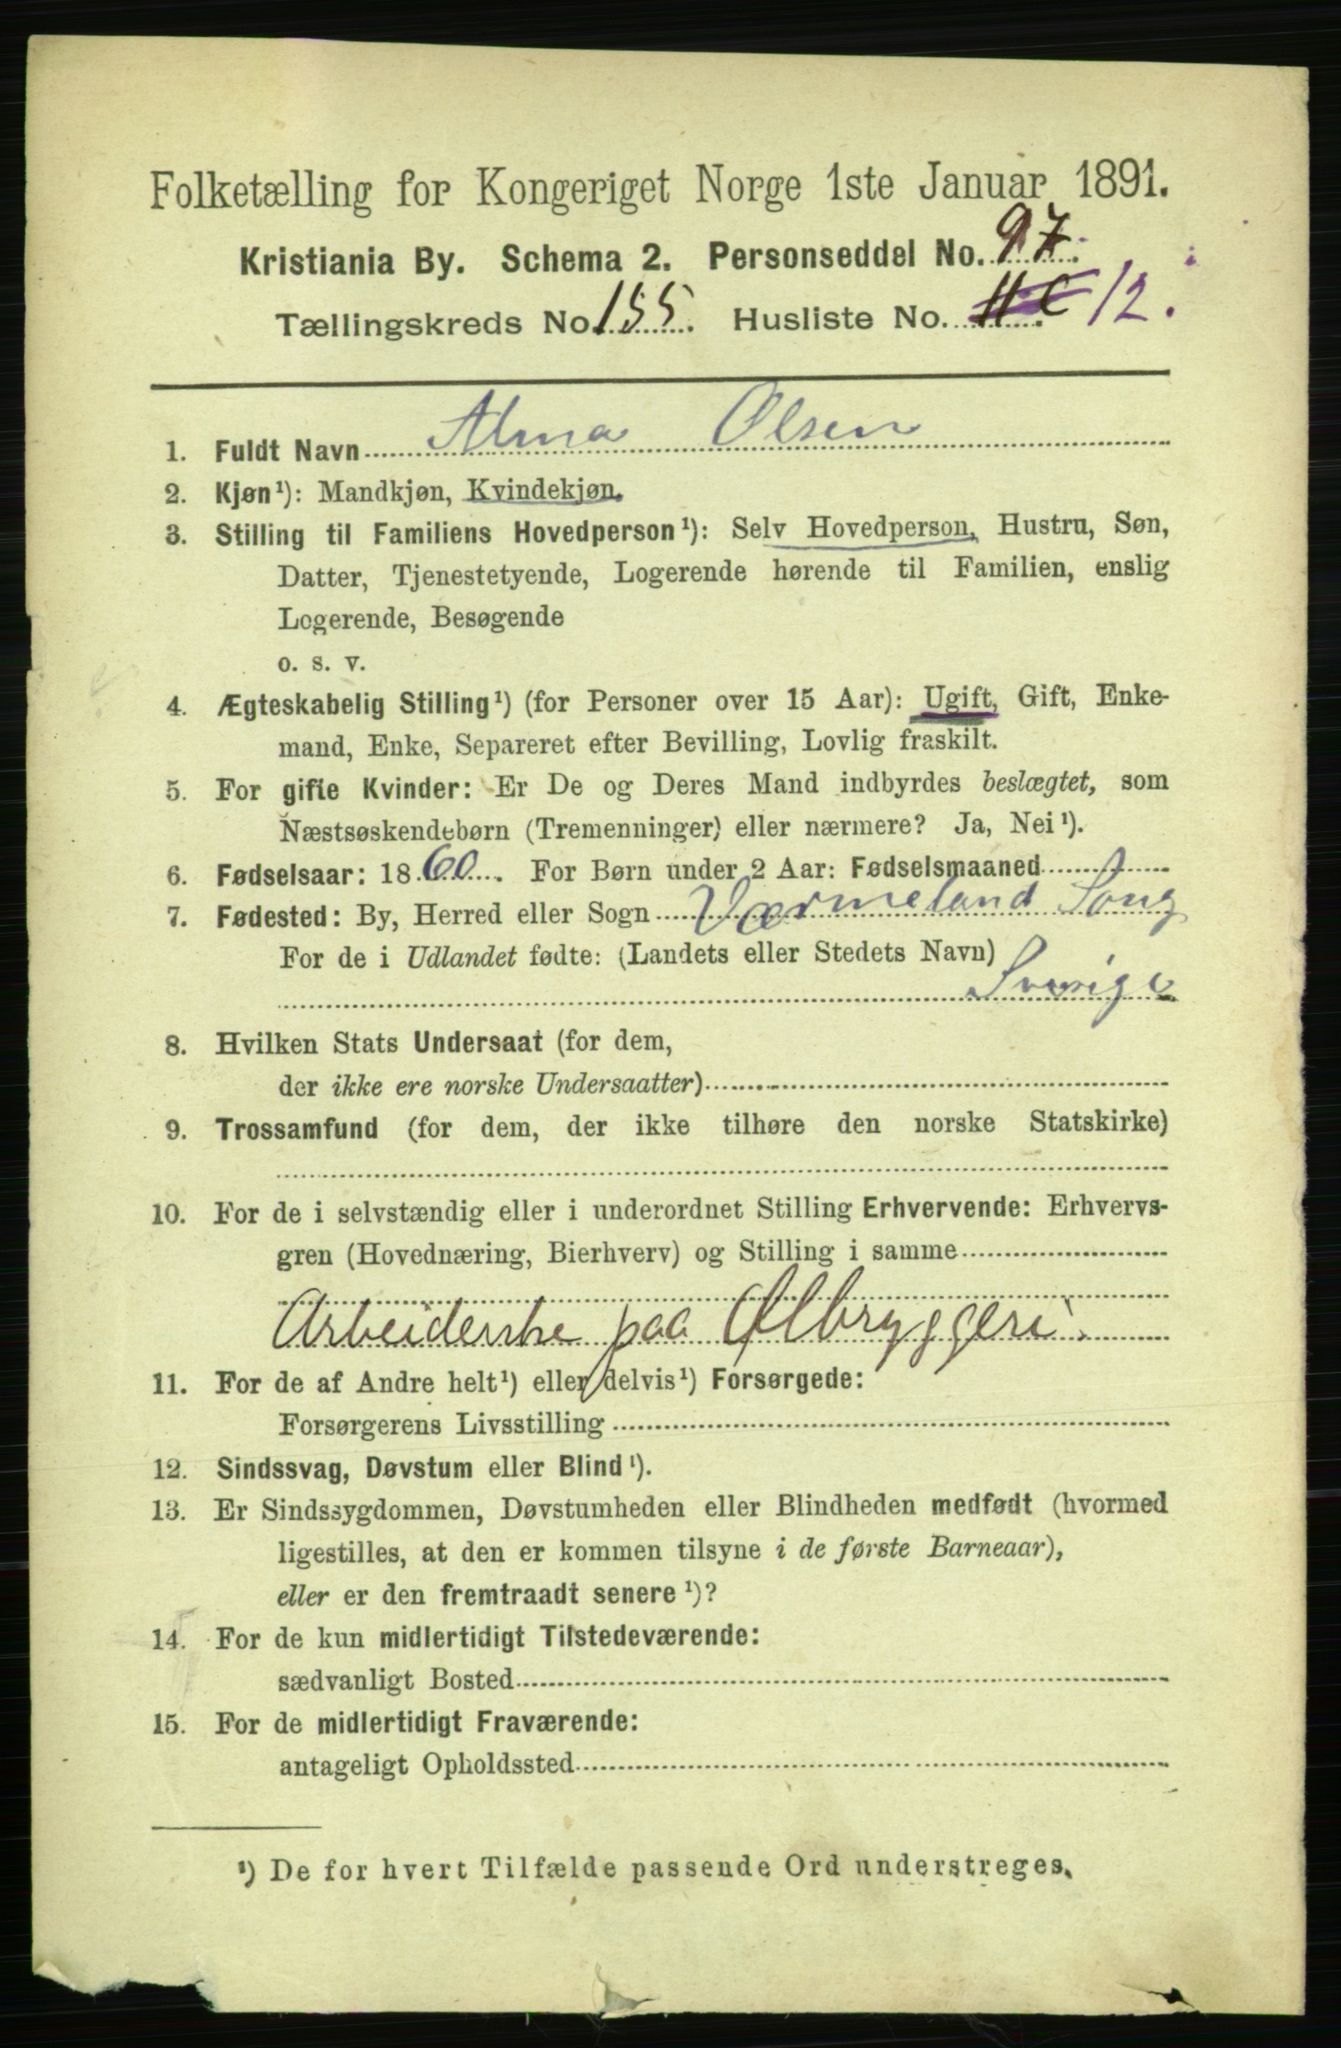 Folketælling for Kongeriget Norge 1ste Januar 1891.
Kristiania By. Schema 2. Personseddel No. 97.
Tællingskreds No. 155. Husliste No. 11 c 12.
1. Fuldt Navn Alma Olsen
2. Kjøn¹): Mandkjøn, Kvindekjøn.
3. Stilling til Familiens Hovedperson¹): Selv Hovedperson, Hustru, Søn,
Datter, Tjenestetyende, Logerende hørende til Familien, enslig
Logerende, Besøgende
o. s. v.
4. Ægteskabelig Stilling¹) (for Personer over 15 Aar): Ugift, Gift, Enke-
mand, Enke, Separeret efter Bevilling, Lovlig fraskilt.
5. For gifte Kvinder: Er De og Deres Mand indbyrdes beslægtet, som
Næstsøskendebørn (Tremenninger) eller nærmere? Ja, Nei¹).
6. Fødselsaar: 1860. For Børn under 2 Aar: Fødselsmaaned
7. Fødested: By, Herred eller Sogn Værmeland
For de i Udlandet fødte: (Landets eller Stedets Navn)
Sverige
8. Hvilken Stats Undersaat (for dem,
der ikke ere norske Undersaatter)
9. Trossamfund (for dem, der ikke tilhøre den norske Statskirke)
10. For de i selvstændig eller i underordnet Stilling Erhvervende: Erhvervs-
gren (Hovednæring, Bierhverv) og Stilling i samme
Arbeiderske paa Ølbryggeri.
11. For de af Andre helt¹) eller delvis¹) Forsørgede:
Forsørgerens Livsstilling
12. Sindssvag, Døvstum eller Blind¹).
13. Er Sindssygdommen, Døvstumheden eller Blindheden medfødt (hvormed
ligestilles, at den er kommen tilsyne i de første Barneaar),
eller er den fremtraadt senere¹)?
14. For de kun midlertidigt Tilstedeværende:
sædvanligt Bosted
15. For de midlertidigt Fraværende:
antageligt Opholdssted
¹) De for hvert Tilfælde passende Ord understreges.